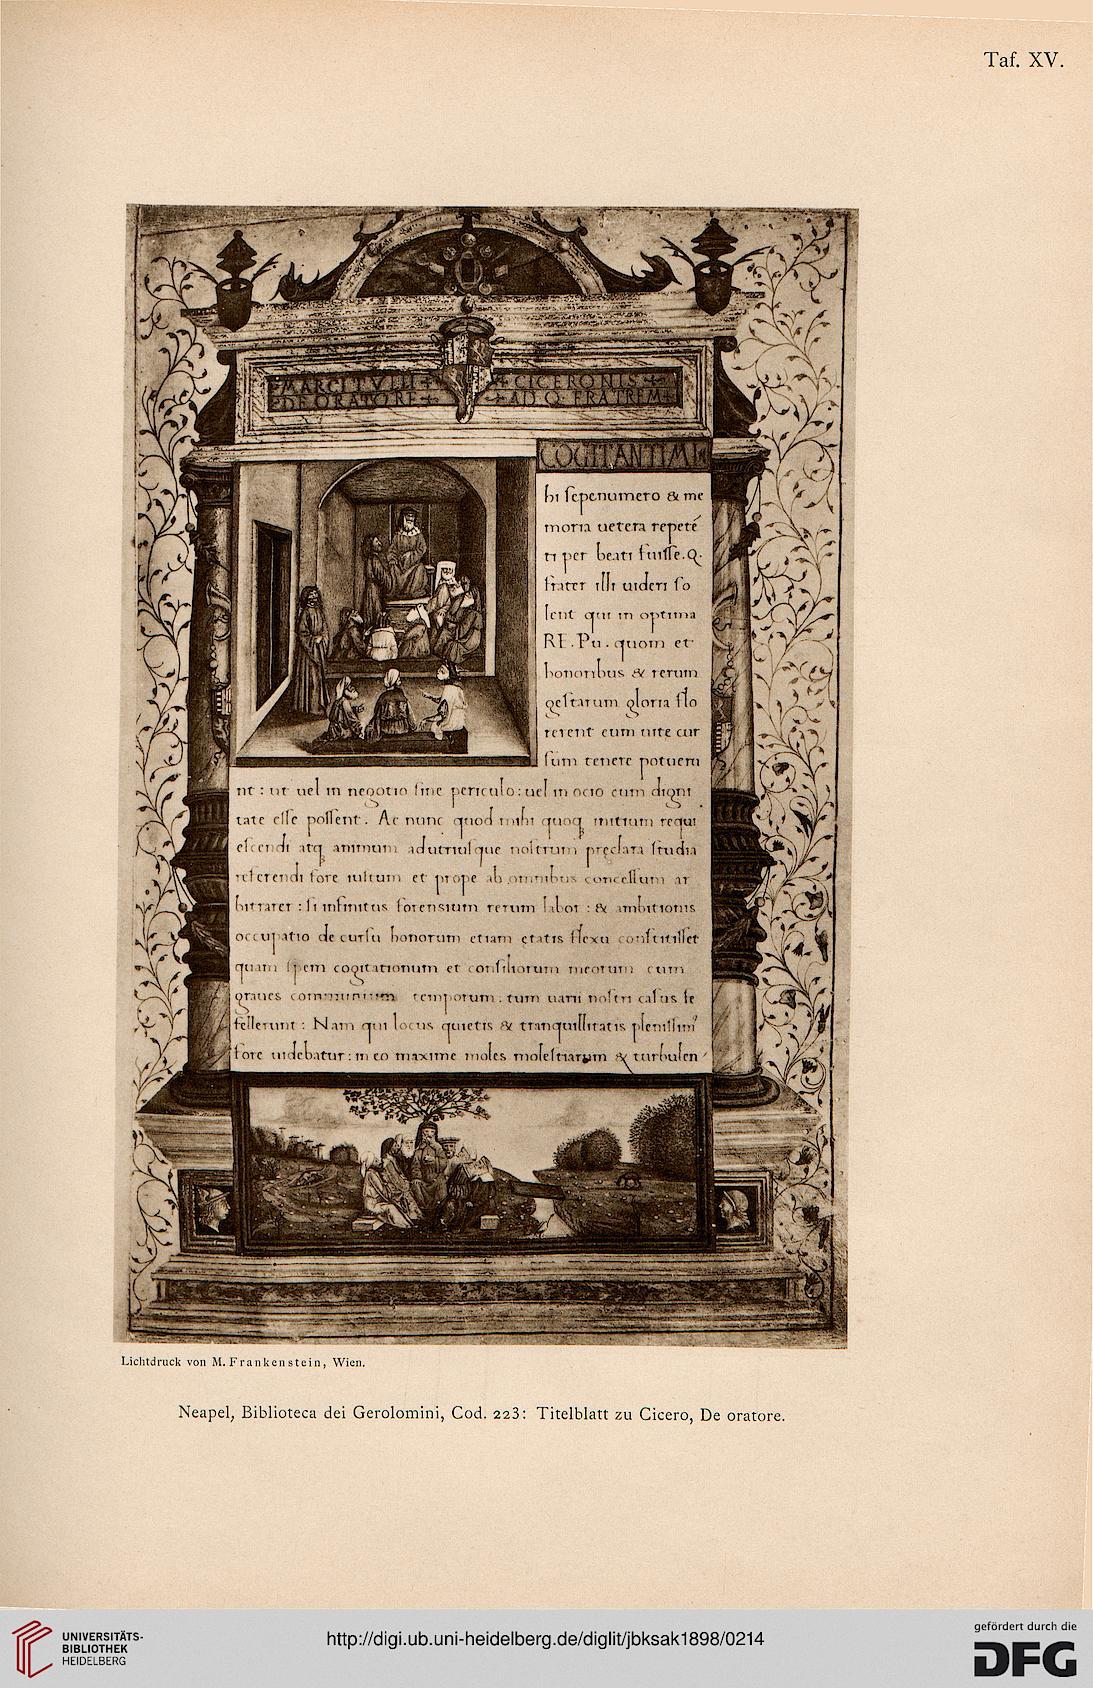 Taf. XV.
MARCI TVLII CICERONIS
DE ORATORE AD Q. FRATREM
COGITANTI MI
hi sepenumero & me
moria uetera repetē
ti per beati fuisse. Q.
frater illi uideri so
lent qui in optima
RE. Pu. quom et
honoribus & rerum
gestarum gloria flo
rerent eum uite cur
sum tenere potueru
nt: ut uel in negotio sine periculo: uel in ocio cum digni
tate esse possent. Ac nunc quod mihi quoq initium requi
escendi atq animum ad utriusque nostrum pręclara studia
referendi fore iustum et prope ab omnibus concessum ar
bitrarer: si infinitus forensium rerum labor: & ambitionis
occupatio decursu honorum etiam etatis flexu constitisset
quam spem cogitationum et consiliorum meorum cum
graues communium temporum: tum uarii nostri casus fe
fellerunt: Nam qui locus quietis & tranquillitatis plenissim
fore uidebatur: in eo maxime moles molestiarum & turbulen
Lichtdruck von M. Frankenstein, Wien.
Neapel, Biblioteca dei Gerolomini, Cod. 223: Titelblatt zu Cicero, De oratore.
UNIVERSITÄTS-
BIBLIOTHEK
HEIDELBERG
http://digi.ub.uni-heidelberg.de/diglit/jbksak1898/0214
gefördert durch die
DFG